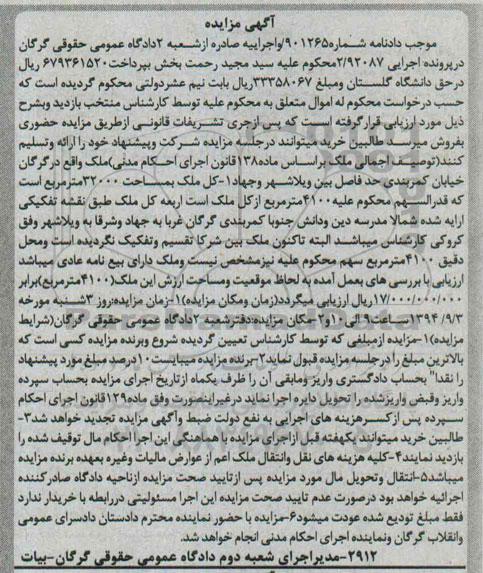 آگهی مزایده
موجب دادنامه شماره۹۰۱۲۶۵/واجراییه صادره ازشعبه ۲دادگاه عمومی حقوقی گرگان
درپرونده اجرایی ۲/۹۲۰۸۷محکوم علیه سید مجید رحمت بخش بپرداخت۶۷۹۳۶۱۵۲۰ ریال
درحق دانشگاه گلستان ومبلغ ۳۳۳۵۸۰۶۷ریال بابت نیم عشردولتی محکوم گردیده است که
حسب درخواست محکوم له اموال متعلق به محکوم علیه توسط کارشناس منتخب بازدید وبشرح
ذیل مورد ارزیابی قرارگرفته است که پس ازجری تشریفات قانونی ازطریق مزایده حضوری
بفروش میرسد طالبین خرید میتوانند درجلسه مزایده شرکت وپیشنهاد خود را ارائه وتسلیم
کنند(توصیف اجمالی ملک براساس ماده۱۳۸قانون اجرای احکام مدنی)ملک واقع درگرگان
خیابان کمربندی حد فاصل بین ویلاشهر وجهاد۱-کل ملک بمساحت ۳۲۰۰۰مترمربع است
که قدرالسهم محکوم علیه۴۱۰۰مترمربع ازکل ملک است اربعه کل ملک طبق نقشه تفکیکی
ارایه شده شمالا مدرسه دین ودانش جنوبا کمربندی گرگان غربا به جهاد وشرقا به ویلاشهر وفق
کروکی کارشناس میباشد البته تاکنون ملک بین شرکا تقسیم وتفکیک نگردیده است ومحل
دقیق ۴۱۰۰مترمربع سهم محکوم علیه نیزمشخص نیست وملک دارای بیع نامه عادی میباشد
ارزیابی با بررسی های بعمل آمده به لحاظ موقعیت ومساحت ارزش این ملک(۴۱۰۰مترمربع)برابر
۱۷/۰۰۰/۰۰۰/۰۰۰ریال ارزیابی میگردد(زمان ومکان مزایده)۱-زمان مزایده:روز ۳شنبه مورخه
۱۳۹۴/۹/۳ساعت۹ الی۱۰و۲-مکان مزایده:دفترشعبه ۲دادگاه عمومی حقوقی گرگان(شرایط
مزایده)۱-مزایده ازمبلغی که توسط کارشناس تعیین گردیده شروع وبرنده مزایده کسی است که
بالاترین مبلغ را درجلسه مزایده قبول نماید۲-برنده مزایده میبایست۱۰درصد مبلغ مورد پیشنهاد
را نقدا" بحساب دادگستری واریز ومابقی آن را ظرف یکماه ازتاریخ اجرای مزایده بحساب سپرده
واریز وقبض واریزشده را تحویل دایره اجرا نماید درغیراینصورت وفق ماده۱۲۹قانون اجرای احکام
سپرده پس ازکسرهزینه های اجرایی به نفع دولت ضبط وآگهی مزایده تجدید خواهد شد۳-
طالبین خرید میتوانند یکهفته قبل ازاجرای مزایده با هماهنگی این اجرا احکام مال توقیف شده را
بازدید نمایند۴-کلیه هزینه های نقل وانتقال ملک اعم از عوارض مالیات وغیره بعهده برنده مزایده
میباشد۵-انتقال وتحویل مال مورد مزایده پس ازتایید صحت مزایده ازناحیه دادگاه صادرکننده
اجرائیه خواهد بود درصورت عدم تایید صحت مزایده این اجرا مسئولیتی دررابطه با خریدار ندارد
فقط مبلغ تودیع شده عودت میشود۶-مزایده با حضور نماینده محترم دادستان دادسرای عمومی
وانقلاب گرگان ونماینده اجرای احکام مدنی انجام خواهد شد.
۲۹۱۲-مدیراجرای شعبه دوم دادگاه عمومی حقوقی گرگان-بیات